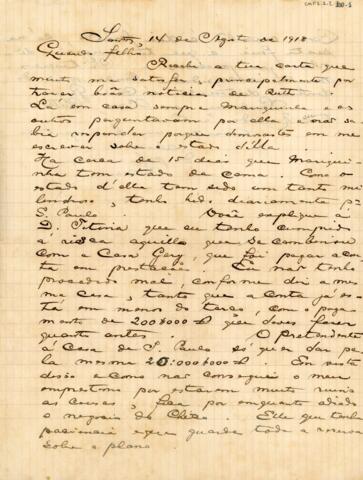 Santos, 14 de Agosto de 1918
Querido filho
Recebi a tua carta que
muito me satisfez, principalmente por
trazer boas noticias de Ruth.
Lá em casa sempre Mariquinha e os
outros perguntavam por ella e eu não sa-
bia responder porque demoraste em me
escrever sobre o estado d'ella.
Ha cerca de 15 dias que Mariqui-
nha tem estado de cama. Como o
estado d'ella tem sido um tanto me-
lindroso, tenho ido diariamente pª
S. Paulo. Você explique a
D. Vitoria que eu tenho cumprido
á risca aquillo que se combinou
com a Casa Gery, que foi pagar a con-
ta em prestações. Eu não tenho
procedido mal, conforme diz a mes-
ma casa, tanto que a conta já es-
tá em menos do terço, com o paga-
mento de 200$000 q que devo fazer
quanto antes. O pretendente
á casa de S. Paulo só quer dar por
la mesma 20:000$000. Em vista
disso e como não consegui o meu
emprestimo por estarem muito ruins
as cousas, fica por emquanto adiado
o negocio do Chico. Elle que tenha
paciencia e que guarde toda a reserva
sobre o plano.